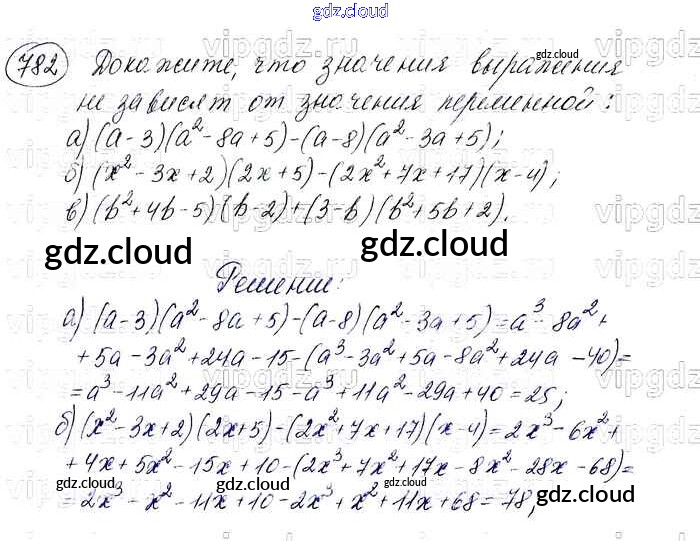 gdz.cloud
782 Докажите, что значения выражения
не зависят от значения переменной:
а) (a-3)(a²-8a+5)-(a-8)(a²-3a+5);
б) (x²-3x+2)(2x+5)-(2x²+7x+17)(x-4);
в) (b²+4b-5)(b-2)+(3-b)(b²+5b+2).
gdz.cloud gdz.cloud
Решение:
а) (a-3)(a²-8a+5)-(a-8)(a²-3a+5)=a³-8a²+
+5a-3a²+24a-15-(a³-3a²+5a-8a²+24a-40)=
=a³-11a²+29a-15-a³+11a²-29a+40=25;
б) (x²-3x+2)(2x+5)-(2x²+7x+17)(x-4)=2x³-6x²+
+4x+5x²-15x+10-(2x³+7x²+17x-8x²-28x-68)=
=2x³-x²-11x+10-2x³+x²+11x+68=78;
gdz.cloud gdz.cloud